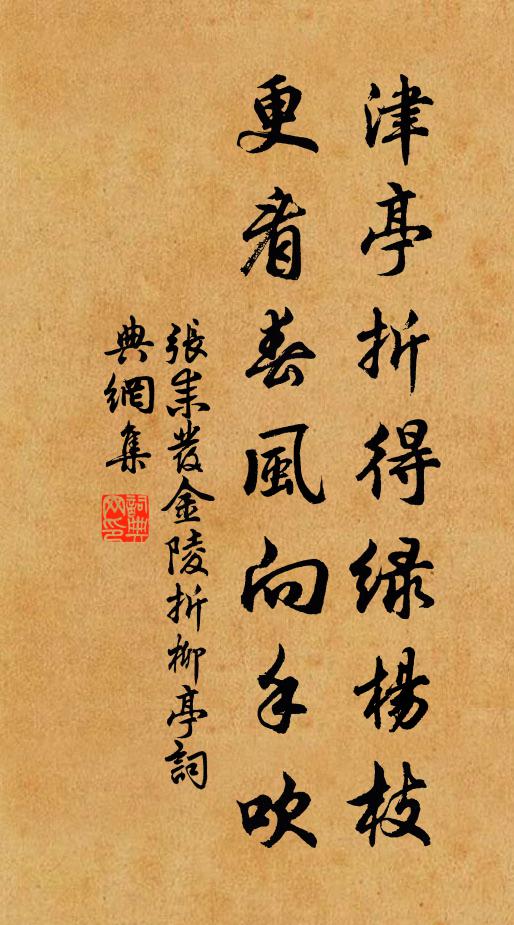 津亭折得綠楊枝
更看春風向手吹
張耒發金陵折柳亭詞
典網集
詞典
網印